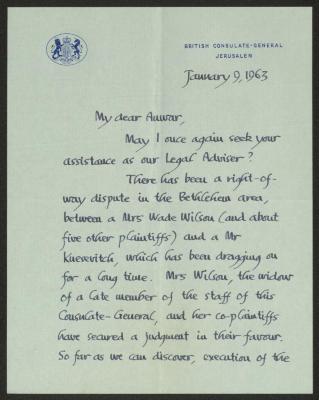 BRITISH CONSULATE-GENERAL
JERUSALEM
January 9, 1963
My dear Anwar,
May I once again seek your
assistance as our Legal Adviser?
There has been a right-of-
way dispute in the Bethlehem area,
between a Mrs Wade Wilson (and about
five other plaintiffs) and a Mr
which has been dragging on
for a long time. Mrs Wilson, the widow
of a late member of the staff of this
Consulate-General, and her co-plaintiffs
have secured a judgment in their favour.
So far as we can discover, execution of the